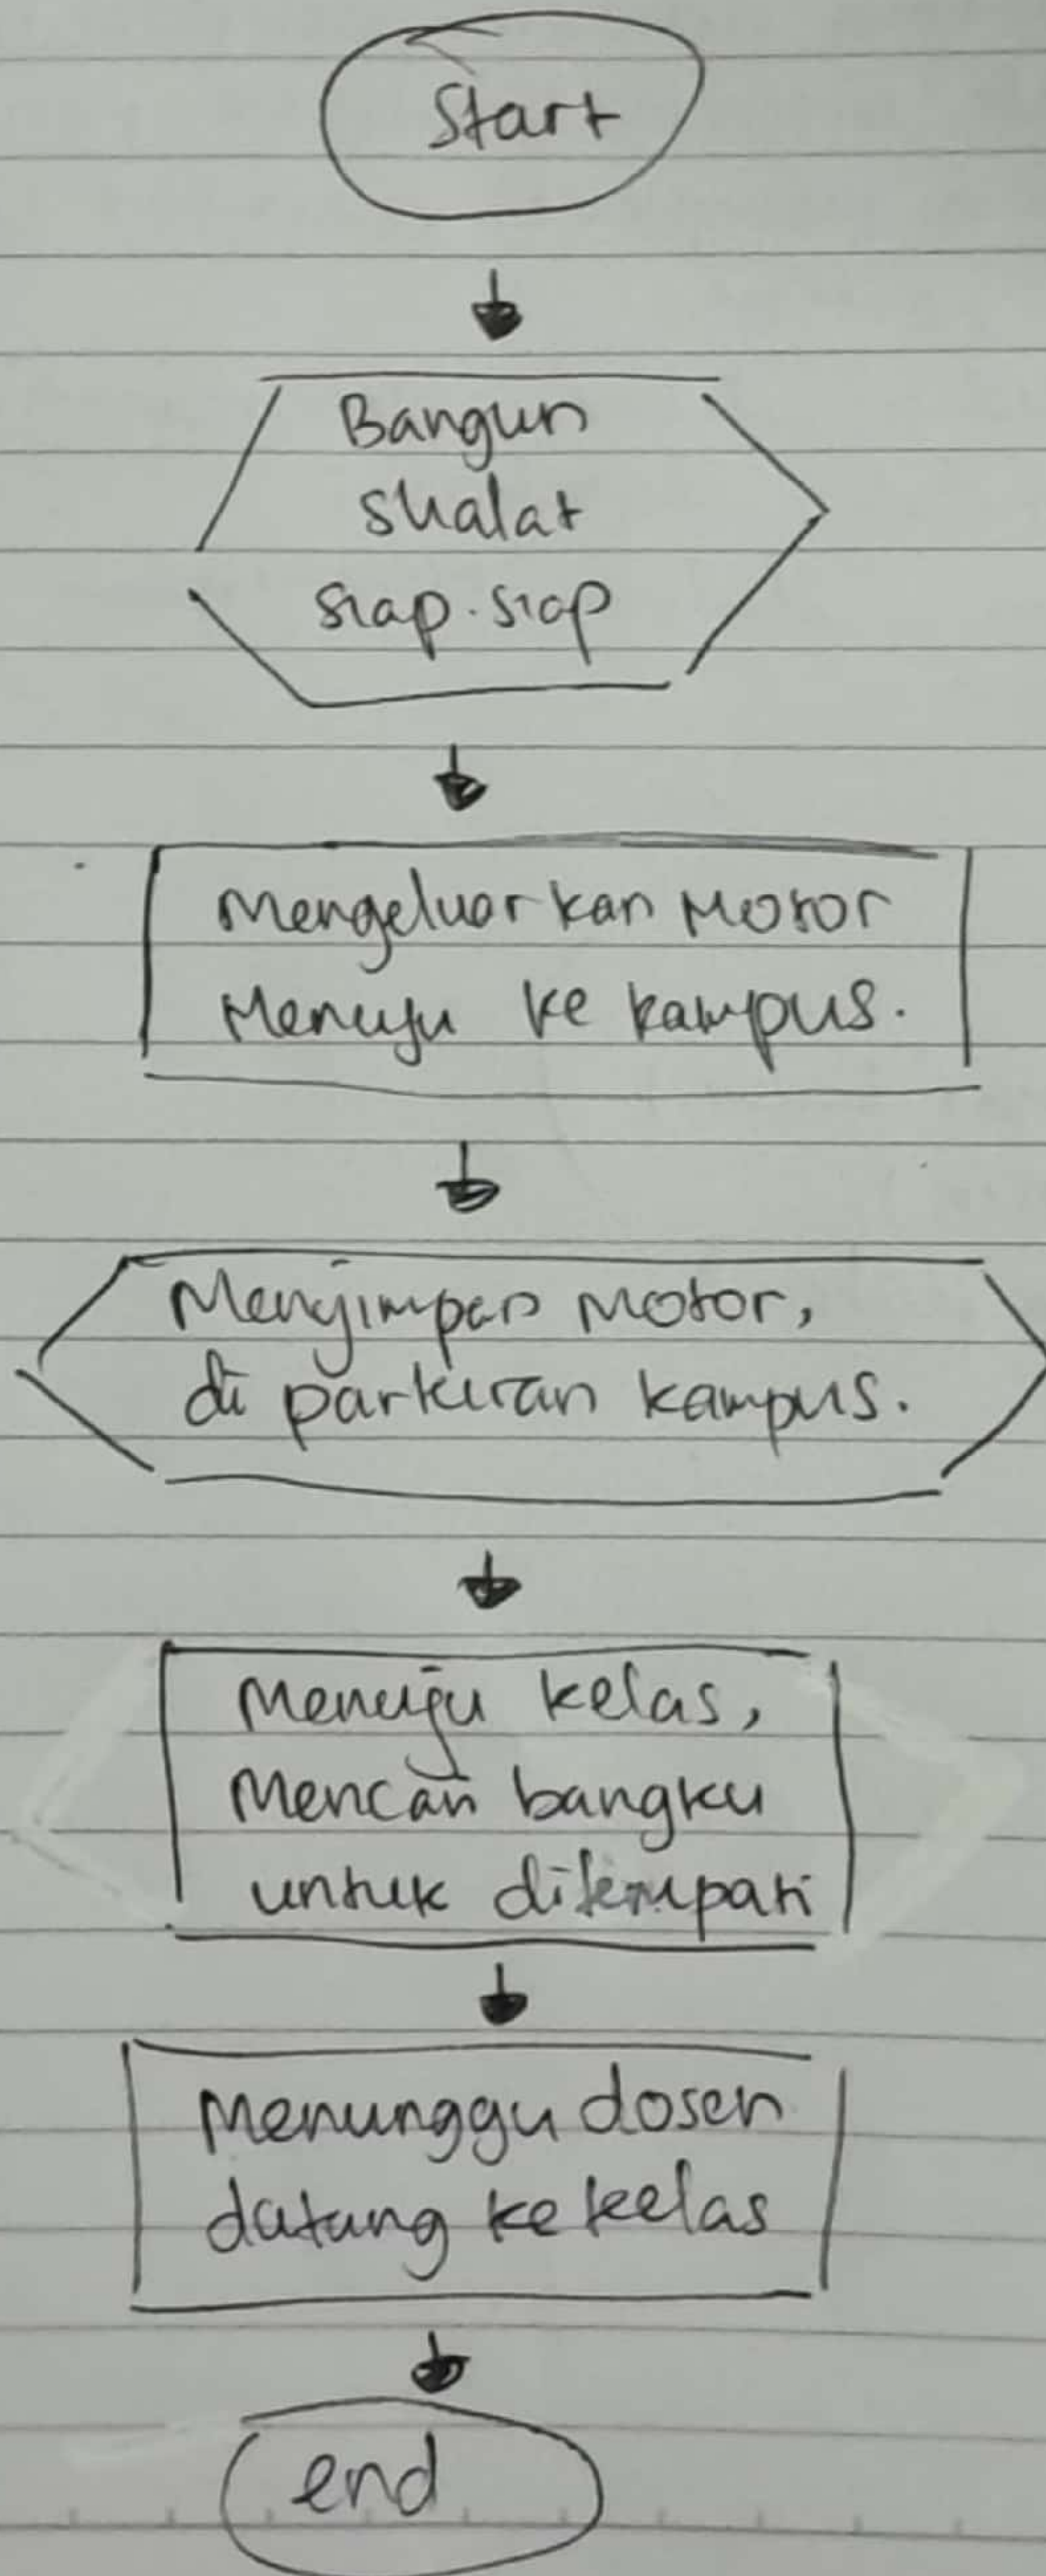 Start
Bangun
shalat
siap-siap
Mengeluarkan Motor
Menuju ke kampus.
Menyimpan Motor,
di parkiran kampus.
Menuju kelas,
Mencari bangku
untuk ditempati
Menunggu dosen
datang ke kelas
end